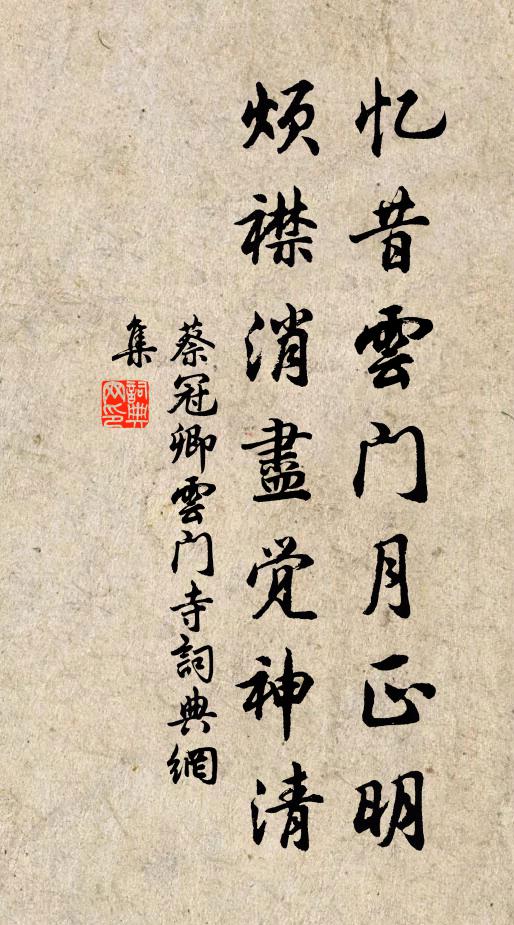 忆昔雲门月正明
烦襟消盡觉神清
蔡冠卿雲门寺詞典網
集
詞典網印